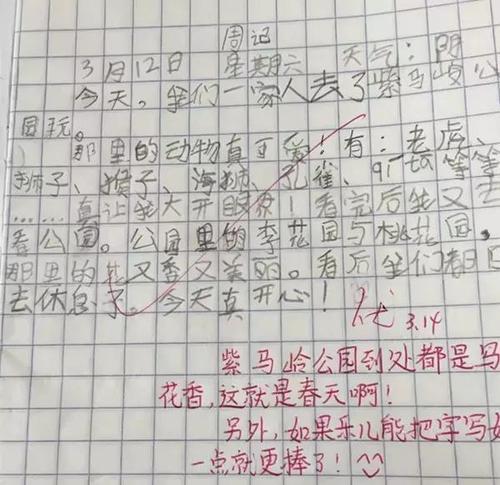 周记
3月12日 星期六 天气:阴
今天,我们一家人去了紫马岭公
园玩。
那里的动物真可爱!有:老虎、
狮子、猴子、海狮、孔雀、等等
……真让我大开眼界!看完后我又去
看公园。公园里的李花园与桃花园,
那里的花又香又美丽。看后我们都
去休息了。今天真开心!
优 3.14
紫马岭公园到处都是鸟
花香,这就是春天啊!
另外,如果乐儿能把字写
一点就更棒了!